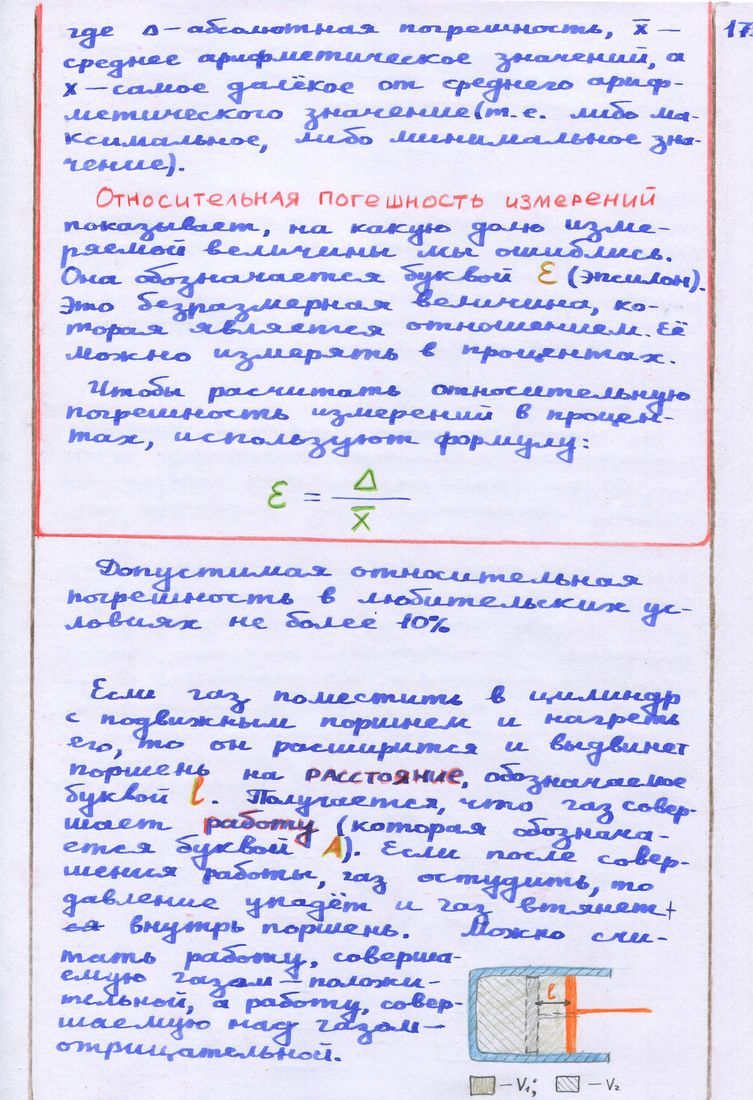 где Δ – абсолютная погрешность, x̅ –
17
среднее арифметическое значений, а
x – самое далёкое от среднего ариф-
метического значение (т.е. либо ма-
ксимальное, либо минимальное зна-
чение).
Относительная погешность измерений
показывает, на какую долю изме-
ряемой величины мы ошиблись.
Она обозначается буквой ε (эпсилон).
Это безразмерная величина, ко-
торая является отношением. Её
можно измерять в процентах.
Чтобы расчитать относительную
погрешность измерений в процен-
тах, используют формулу:
ε = Δ / x̅
Допустимая относительная
погрешность в любительских ус-
ловиях не более 10%
Если газ поместить в цилиндр
с подвижным поршнем и нагреть
его, то он расширится и выдвинет
поршень на расстояние, обозначаемое
буквой l. Получается, что газ совер-
шает работу (которая обознача-
ется буквой A). Если после совер-
шения работы, газ остудить, то
давление упадёт и газ втянет
внутрь поршень. Можно счи-
тать работу, соверша-
емую газом – положи-
тельной, а работу, совер-
шаемую над газом –
отрицательной.
l
– V₁; – V₂